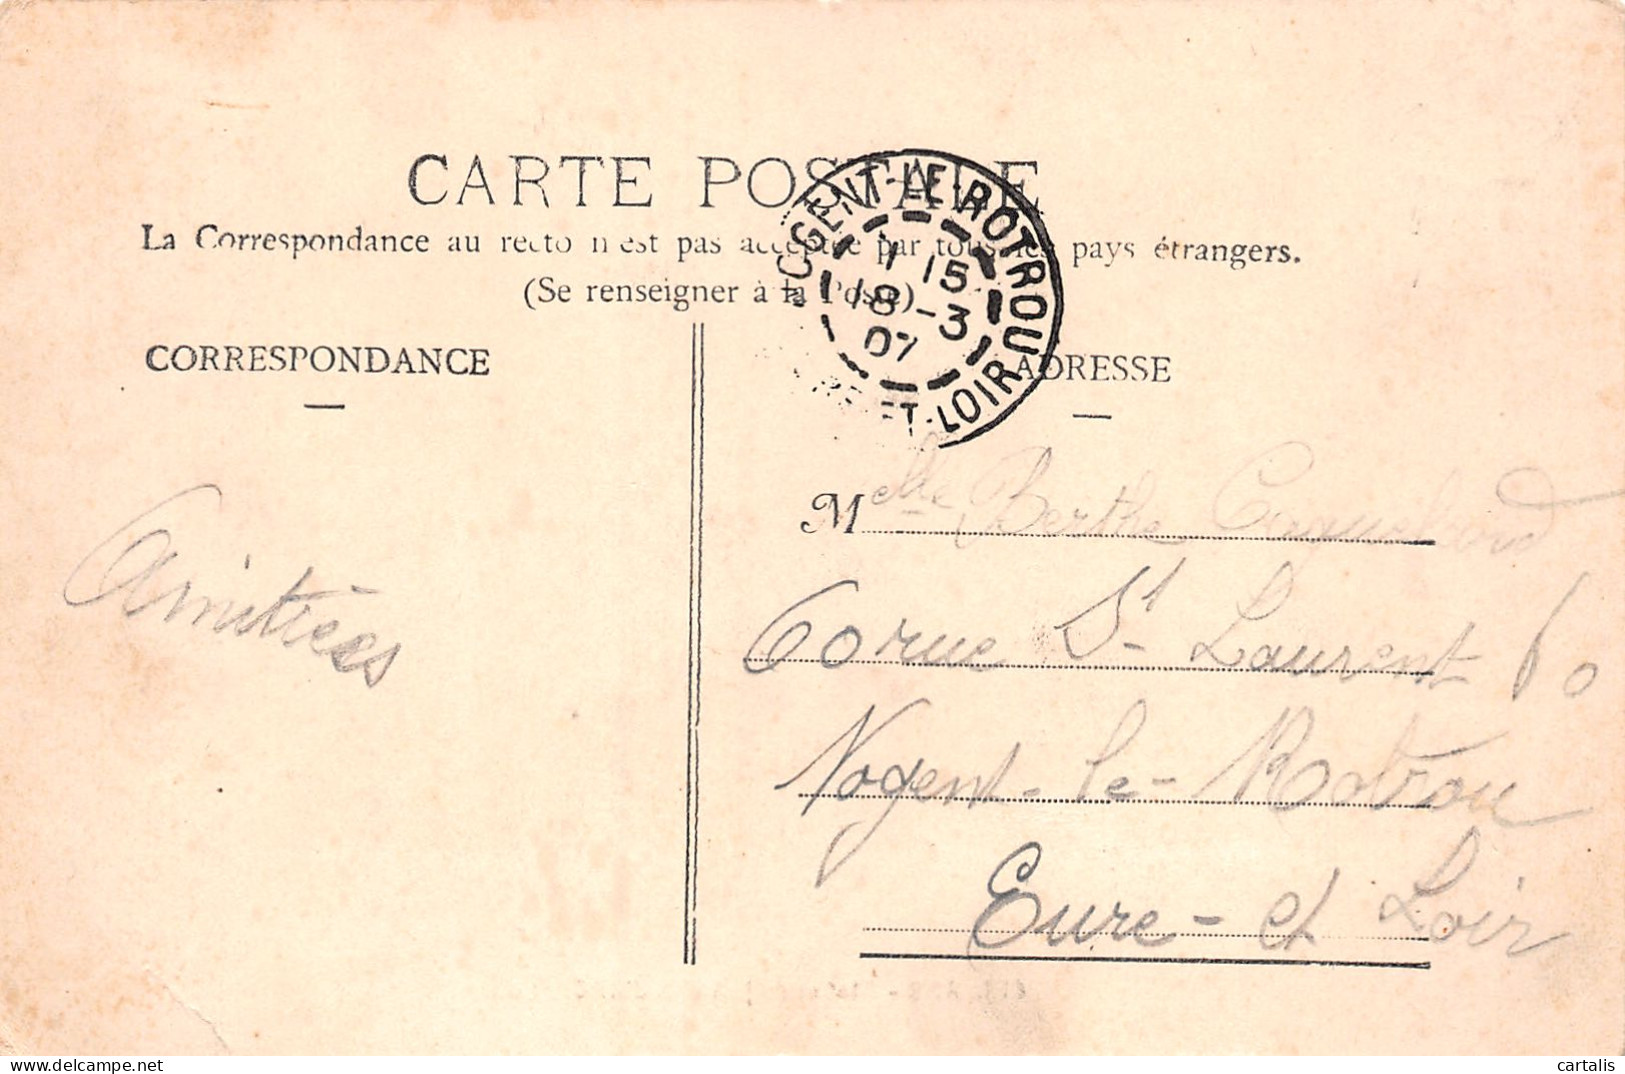 CARTE POSTALE
La Correspondance au recto n'est pas acceptée par tous les pays étrangers.
(Se renseigner à la Poste)
NOGENT-LE-ROTROU
1 15
18 -3
07
EURE-ET-LOIR
CORRESPONDANCE
ADRESSE
Amitiées
Melle Berthe
60 rue St Laurent 60
Nogent-le-Rotrou
Eure-et Loir
cartalis